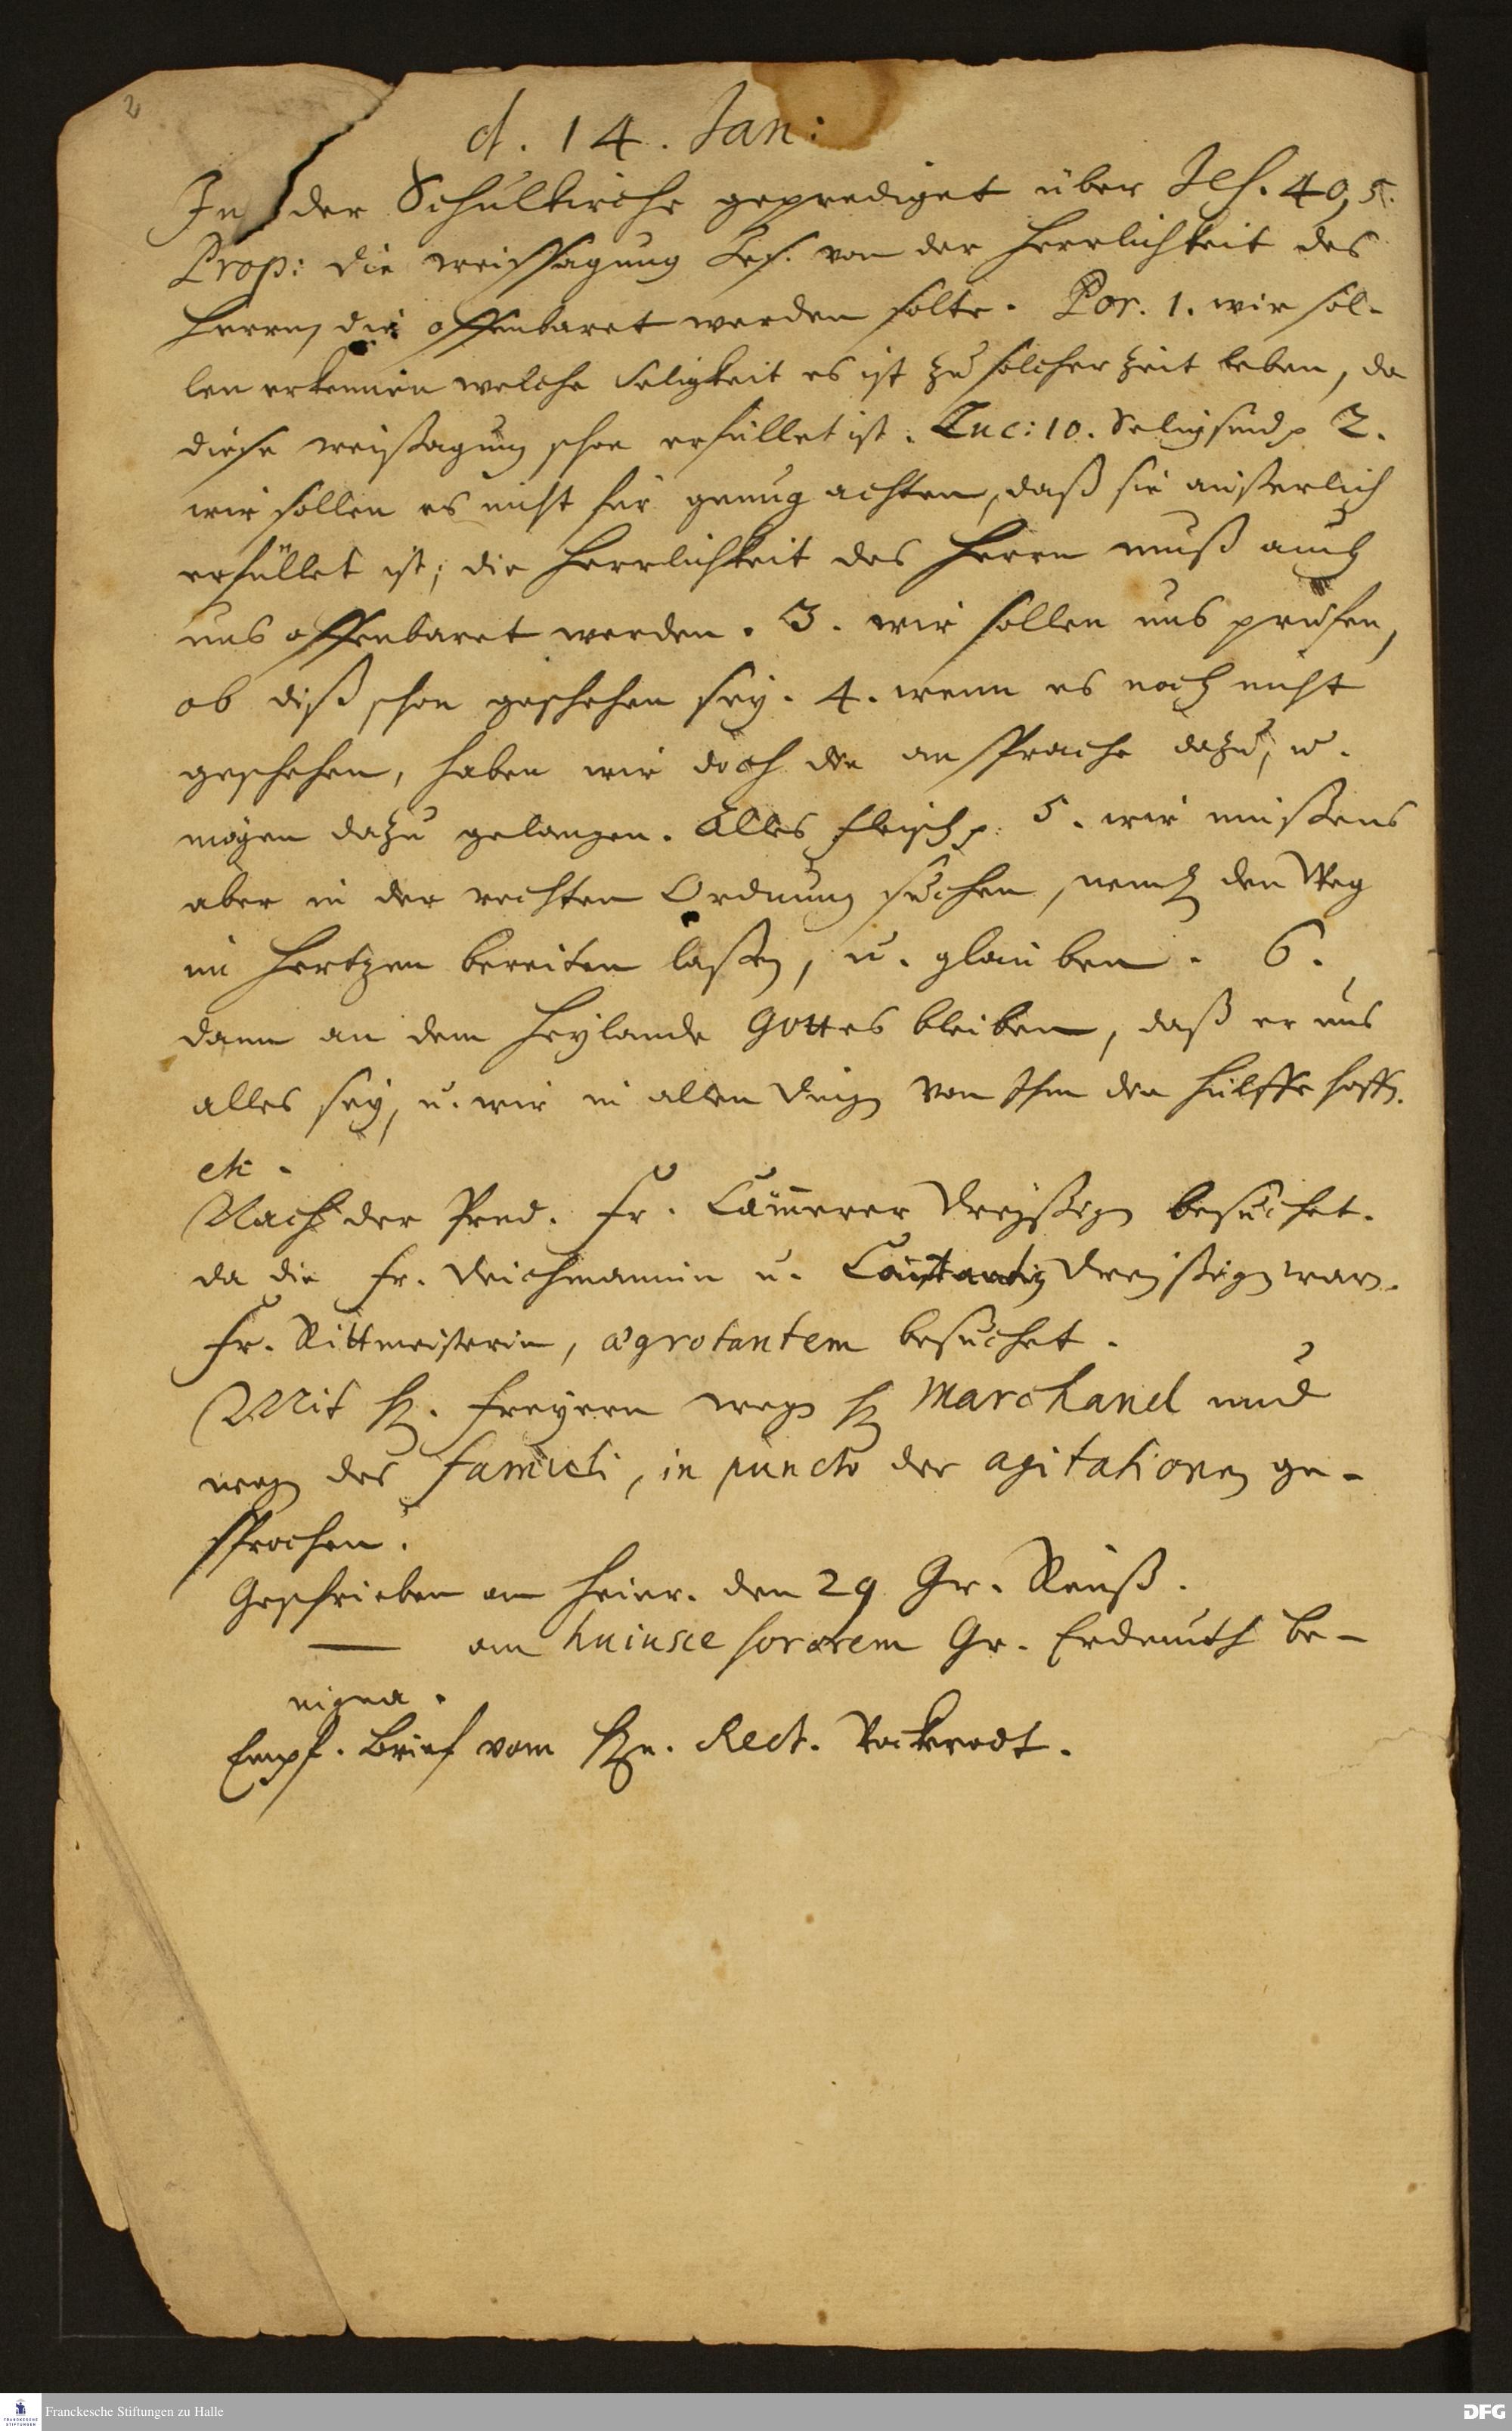 2
d. 14. Jan:
In der Schulkirche geprediget über Jes. 40, 5.
Prop: die weissagung Jes. von der Herrlichkeit des
Herrn, die offenbaret werden solte. Por. 1. wir sol-
len erkennen welche Seligkeit es ist zu solcher Zeit leben, da
diese weissagung schon erfüllet ist. Luc: 10. Selig sind p 2.
wir sollen es nicht für genug achten, daß sie äußerlich
erfüllet ist; die Herrlichkeit des Herrn muß auch
uns offenbaret werden. 3. wir sollen uns prüfen,
ob diß schon geschehen sey. 4. wenn es noch nicht
geschehen, haben wir doch die ansprache dazu, u.
mögen dazu gelangen. Alles fleisch p. 5. wir müßens
aber in der rechten Ordnung suchen, neml. den Weg
im Hertzen bereiten laßen, u. glauben. 6.
dann an dem Heylande Gottes bleiben, daß er uns
alles sey, u. wir in allen dingen von Ihm die Hülffe hoffen.
etc.
Nach der Pred. Fr. Cämmerer Dreyßigen besuchet.
da die Fr. Deichmannin u. Dreyßigen waren.
Fr. Rittmeisterin, aegrotantem besuchet.
Mit H. Freyern wegen H. Marchand und
wegen des famuli, in puncto der agitationen ge-
sprochen.
Geschrieben an Heinr. den 29 Gr. Reuß.
— an huiusce sororem Gr. Erdmuth Be-
nigna.
Empf. Brief vom Hn. Rect. Vockerodt.
Franckesche Stiftungen zu Halle
DFG